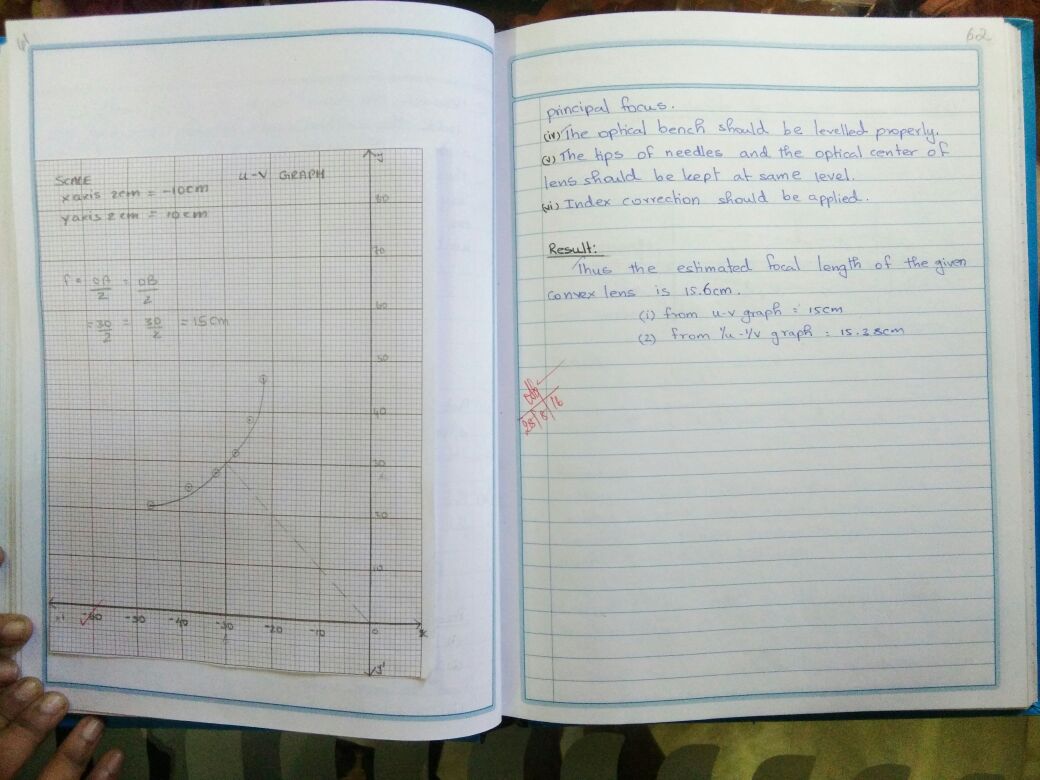 61
SCALE
x axis 2cm = -10cm
y axis 2cm = 10cm
u-v GRAPH
f = OA/2 = OB/2
= 30/2 = 30/2 = 15cm
y
80
70
60
50
40
30
20
10
x' -60 -50 -40 -30 -20 -10 0 x
y'
62
principal focus.
(iv) The optical bench should be levelled properly.
(v) The tips of needles and the optical center of
lens should be kept at same level.
(vi) Index correction should be applied.
Result:
Thus the estimated focal length of the given
convex lens is 15.6cm.
(i) from u-v graph = 15cm
(2) from 1/u - 1/v graph = 15.38cm